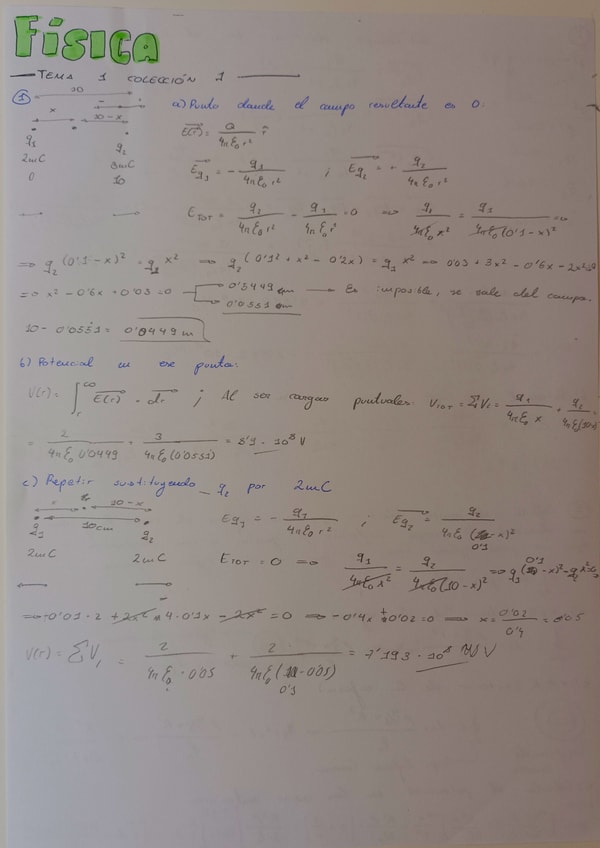 FÍSICA
TEMA 1 COLECCIÓN 1
10
① a) Punto donde el campo resultante es 0:
x 10-x
q1 q2
2mC 3mC
0 10
E(r) = Q/4πε0 r² r̂
Eq1 = - q1/4πε0 r² ; Eq2 = + q2/4πε0 r²
ETOT = q2/4πε0 r² - q1/4πε0 r² = 0 ⇒ q1/4πε0 x² = q2/4πε0 (0'1-x)² ⇒
⇒ q2 (0'1-x)² = q2 x² ⇒ q2 (0'1² + x² - 0'2x) = q1 x² ⇒ 0'03 + 3x² - 0'6x - 2x² = 0
⇒ x² - 0'6x + 0'03 = 0 0'5449 cm Es imposible, se sale del campo.
0'0551 cm
10 - 0'0551 = 0'0449 m
b) Potencial en ese punto:
V(r) = ∫r^∞ E(r) · dr ; Al ser cargas puntuales: VTOT = ΣVi = q1/4πε0 x + q2/4πε0(10-x)
= 2/4πε0 0'0449 + 3/4πε0 (0'0551) = 8'9 · 10⁸ V
c) Repetir sustituyendo q2 por 2mC
x 10-x
10cm
q1 q2
Eq1 = - q1/4πε0 r² ; Eq2 = q2/4πε0 (0'1-x)²
2mC 2mC
ETOT = 0 ⇒ q1/4πε0 x² = q2/4πε0 (10-x)² ⇒ q1 (0'1-x)² - q2 x² = 0
⇒ 0'01 · 2 + 2x² - 4 · 0'1x - 2x² = 0 ⇒ -0'4x + 0'02 = 0 ⇒ x = 0'02/0'4 = 0'05
V(r) = ΣVi = 2/4πε0 · 0'05 + 2/4πε0 (0'1-0'05) = 7'193 · 10⁸ V